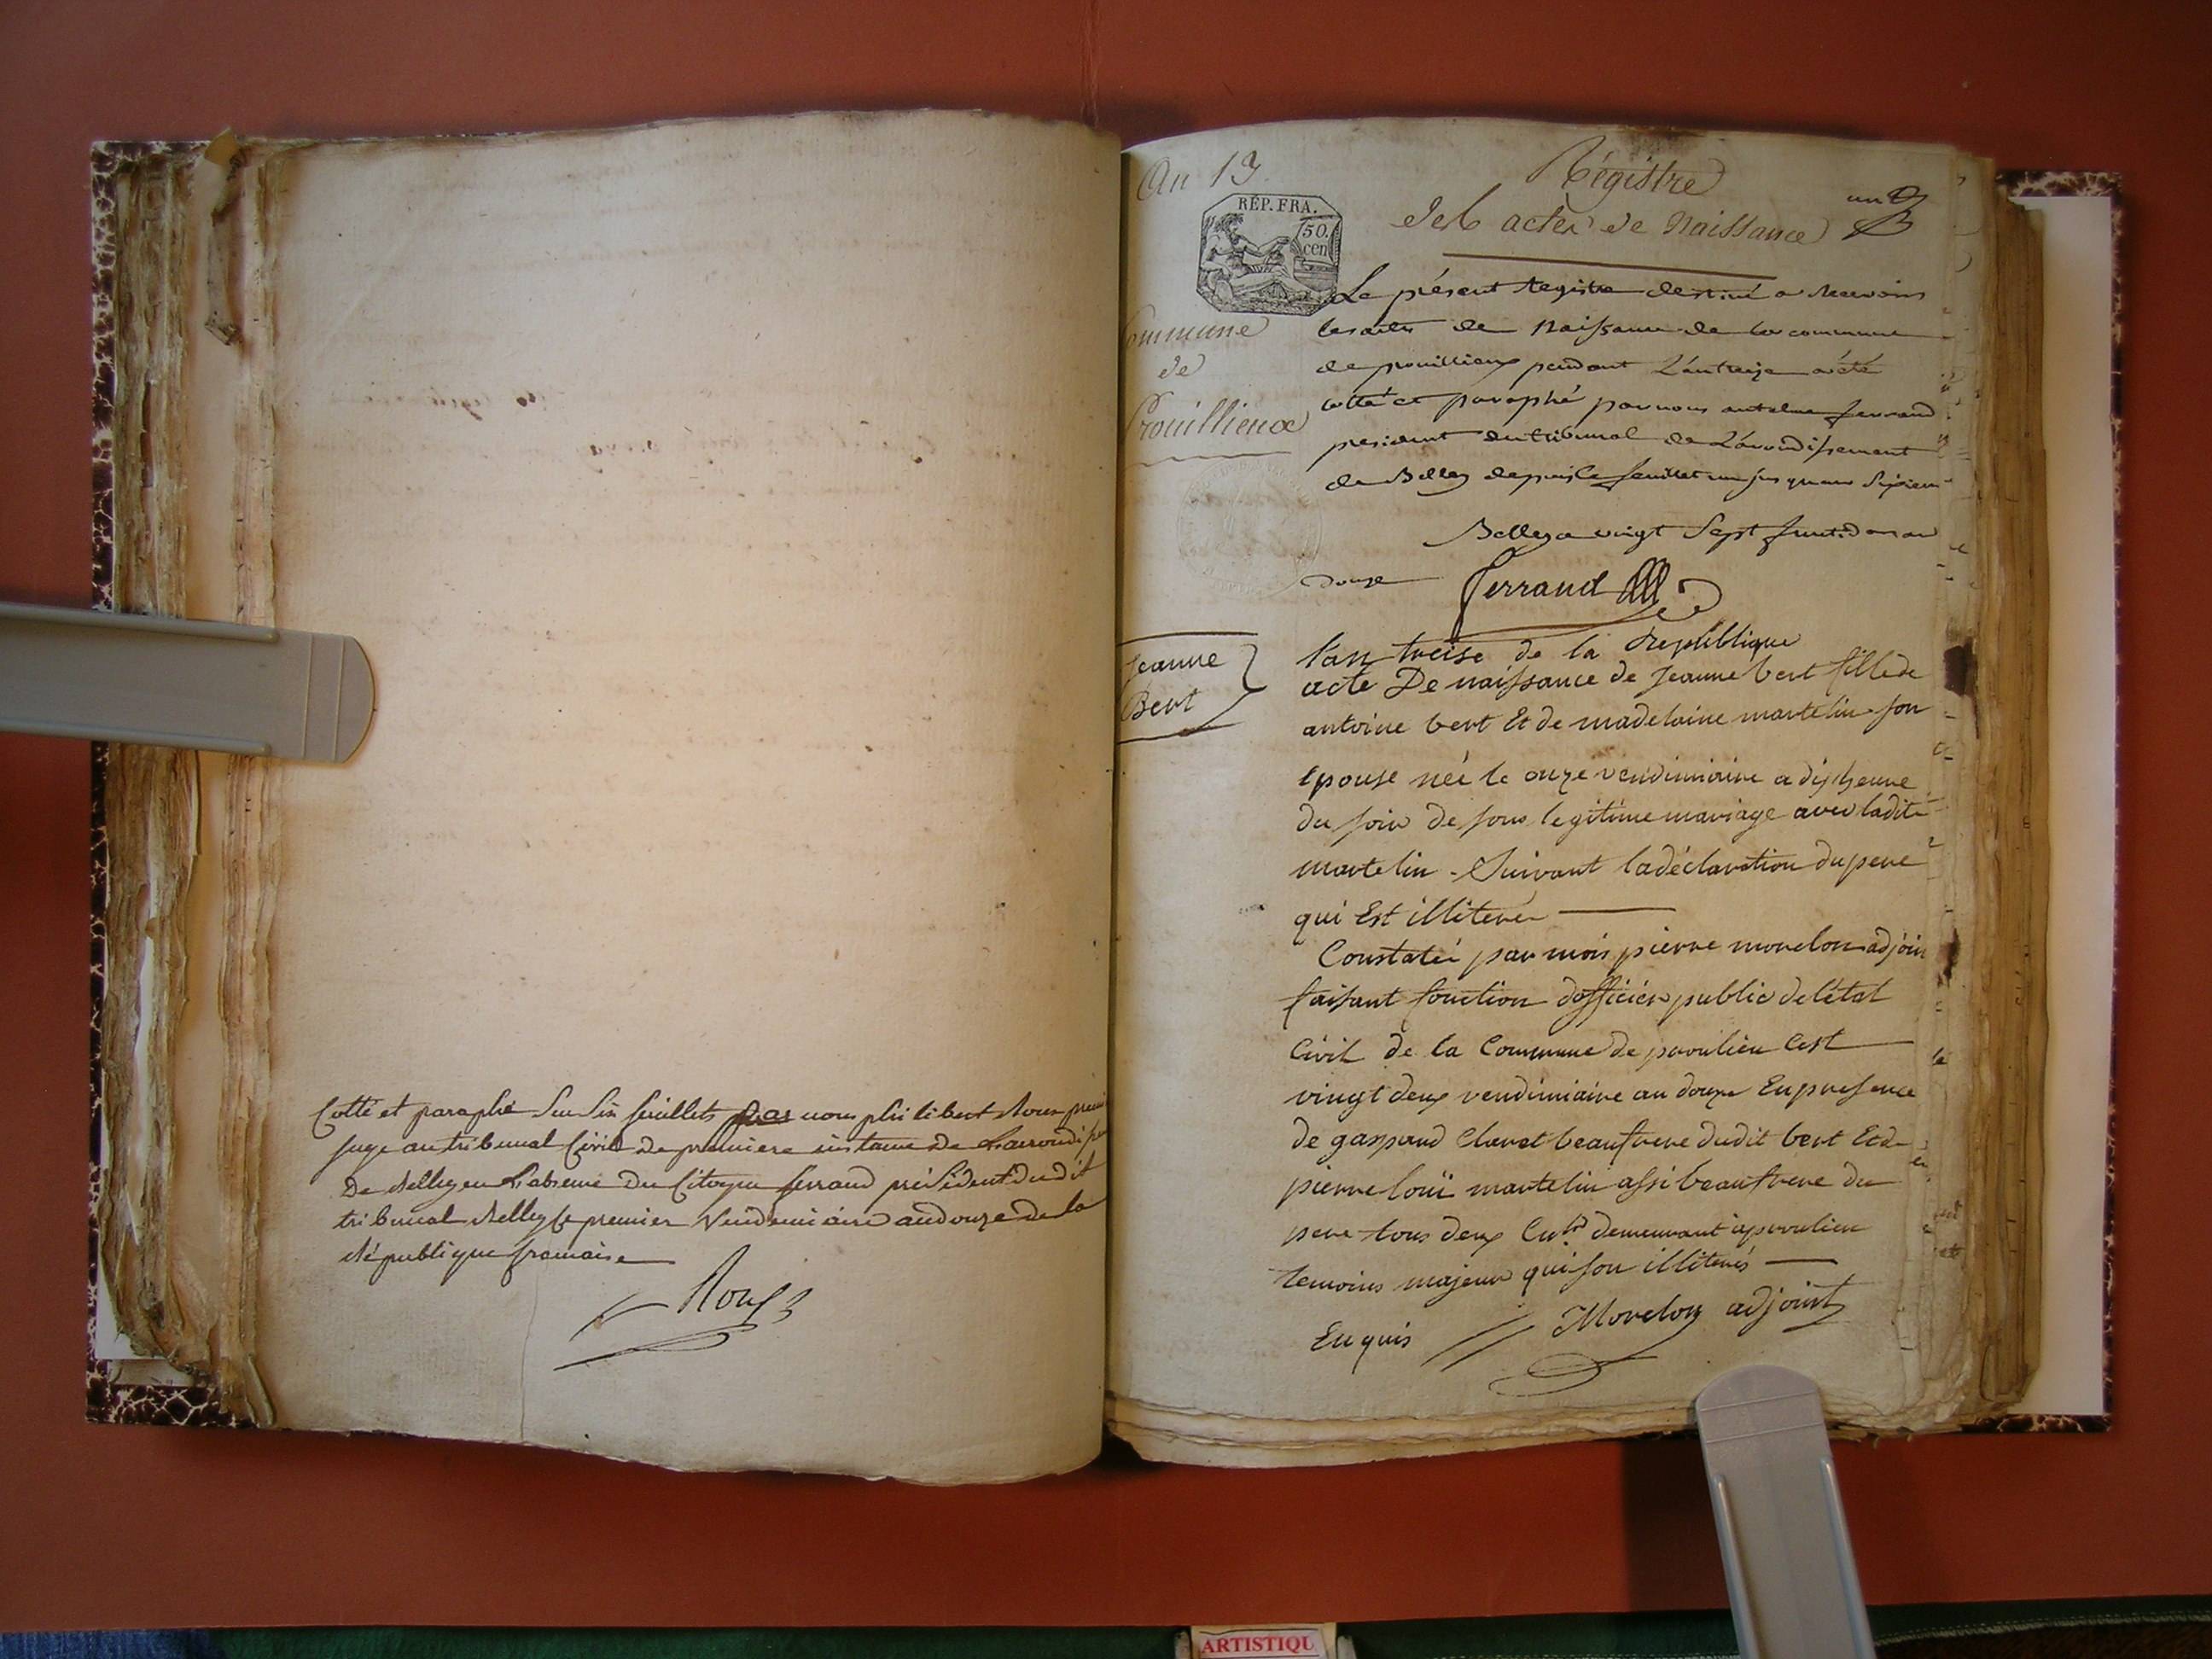 Cotté et paraphé sur six feuillets par nous philibert Roux
juge au tribunal Civil de premiere instance de L'arrondis
De Belley en L'absence Du Citoyen ferrand président Dudit
tribunal Belley le premier Vendemiaire an douze de la
République française
Roux
An 13
Régistre
des actes de Naissance
un
RÉP. FRA.
50.
cen
Commune
de
Prouillieux
Le présent registre destiné a recevoir
les actes de Naissance de la commune
de prouillieux pendant L'an treize a été
cotté et paraphé par nous antelme ferrand
president du tribunal de L'arrondissement
de Belley depuis le feuillet un jusquau
Belley ce vingt Sept fructidor an
Douze
Ferrand
Jeanne
Bert
l'an treise de la Republique
acte De naissance de Jeanne bert fille de
antoine bert Et de madelaine martelin son
epouse née le onze vendimiaire a dix heure
du soir de son legitime mariage avec ladite
martelin - Suivant la déclaration du pere
qui Est illiterer
Constaté par moi pierre morelon adjoin
faisant fonction dofficier public de létat
Civil de la Commune de proulieu Cest
vingt deux vendimiaire an douze En presence
de gaspard Claret beaufrere dudit bert Et de
pierre loui martelin assi beaufrere du
pere tous deux demeurant a proulieu
temoins majeur qui son illiterés
Enquis Morelon adjoint
ARTISTIQU